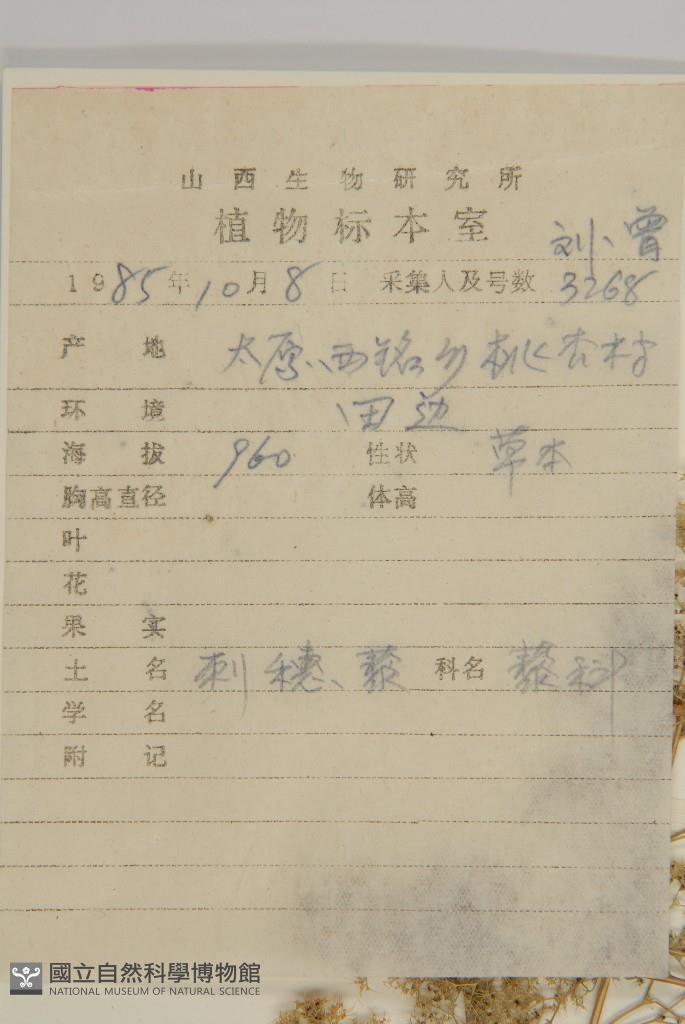 山西生物研究所
植物标本室
刘、曾
1985年10月8日 采集人及号数 3268
产地 太原、西铭乡桃杏村
环境 田边
海拔 960 性状 草本
胸高直径 体高
叶
花
果实
土名 刺穗、藜 科名 藜科
学名
附记
國立自然科學博物館
NATIONAL MUSEUM OF NATURAL SCIENCE